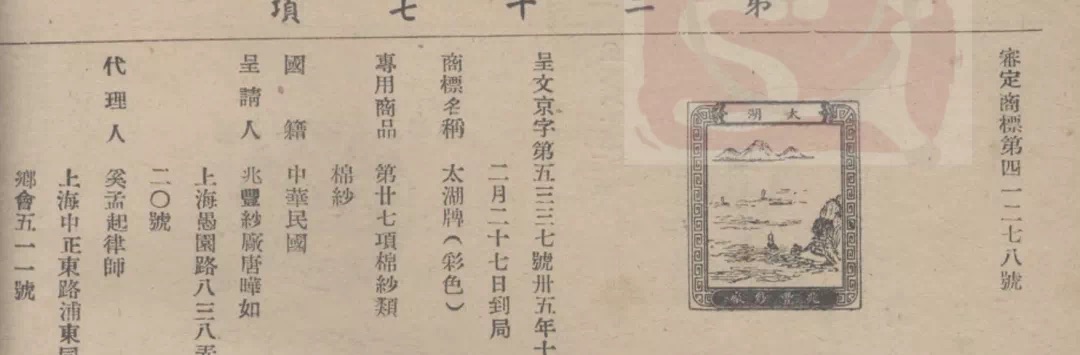 第二十七項
審定商標第四一二七八號
太湖
呈文京字第五三三七號卅五年十
二月二十七日到局
商標名稱 太湖牌（彩色）
專用商品 第廿七項棉紗類
棉紗
國籍 中華民國
呈請人 兆豐紗廠唐曄如
上海愚園路八三八弄
二〇號
代理人 奚孟起律師
上海中正東路浦東同
鄉會五一一號